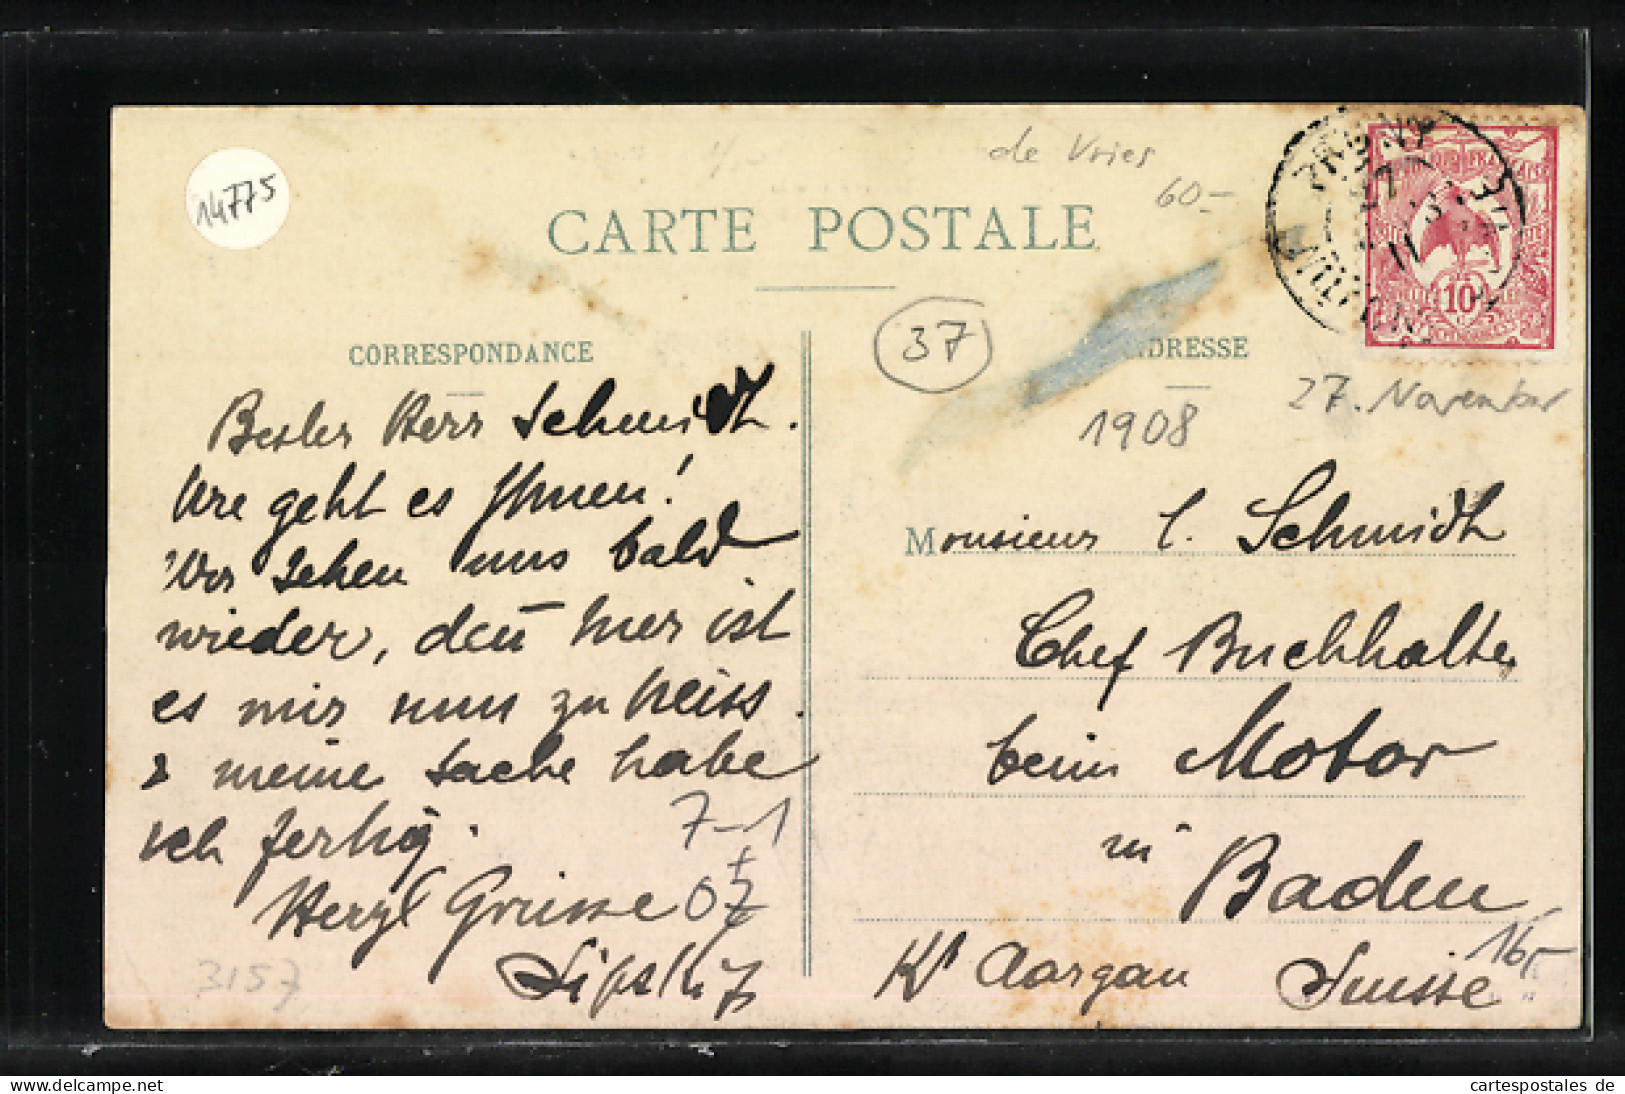 14775
de Vries
60.-
CARTE POSTALE
37
CORRESPONDANCE
ADRESSE
27. November
1908
Bester Herr Schmidt.
Wie geht es Ihnen!
Wir sehen uns bald
wieder, den̄ hier ist
es mir nun zu heiss.
& meine Sache habe
ich fertig.
7-1
07
Herzl Grüsse
Lipschütz
3157
Monsieur C. Schmidt
Chef Buchhalter
beim Motor
in Baden
Kt Aargau Suisse
16,-
10
27
11
tausendsassa
cartespostales de